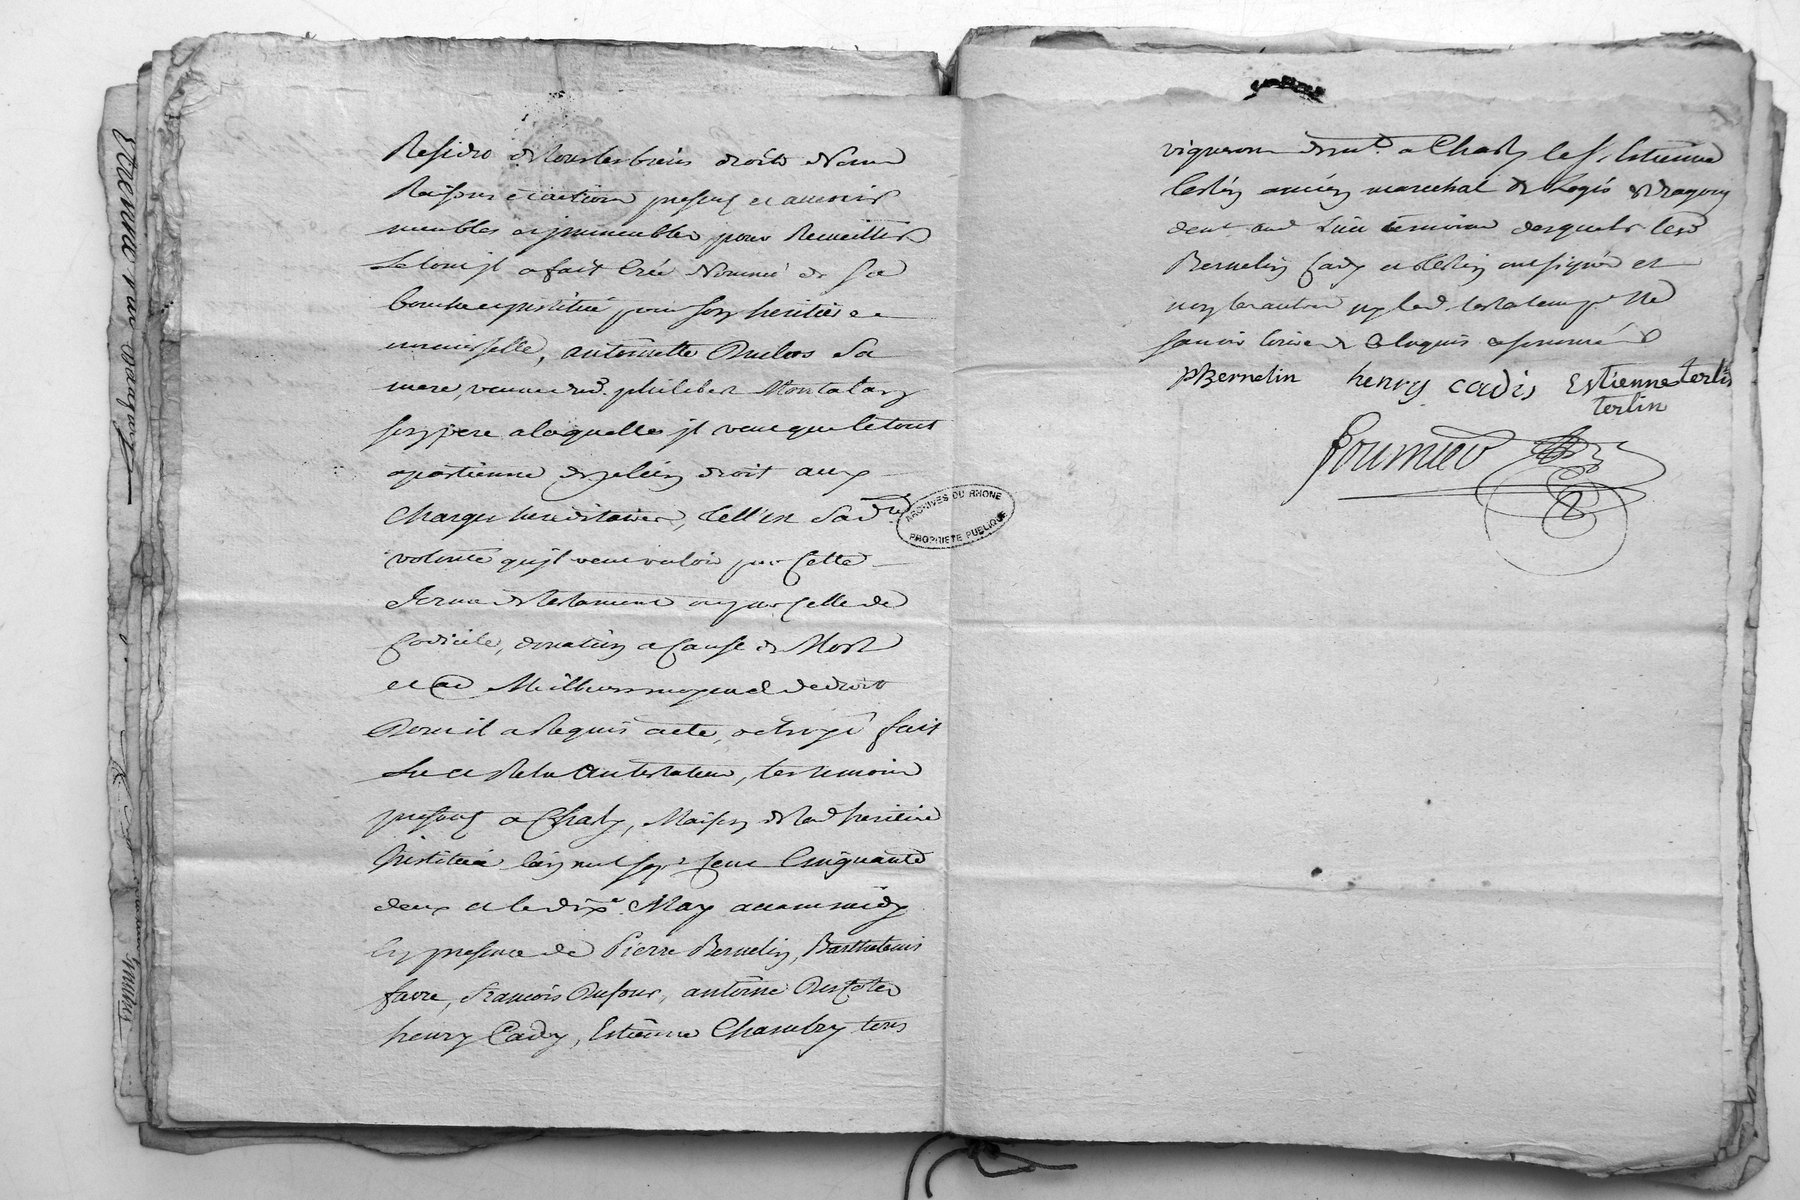 Residu de tous les biens droits Noms
Raisons et actions presents et avenir
meubles et jmmeubles pour Recueillir
Le tout jl a fait Crée Nommé de Sa
bouche et jnstitué pour son heritiere
universelle, antoinette Dubos Sa
mere, veuve dud. philibert Montalan
son pere a laquelle jl veut que le tout
apartienne de plein droit aux
Charges hereditaires, Cell'est Sad. dre
volonté qu'jl veut valoir par Cette
forme de testament ou par Celle de
Codicile, donation a Cause de Mort
et au Meilleurs moyens de droit
Dont il a Requis acte, octroyé fait
Lu et Relu au testateur, et temoins
presents a Charly, Maison de lad heritiere
Instituée l'an mil sept Cent Cinquante
deux et le dixe. May avant midy
En presence de Pierre Bernelin, Barthelemis
favre, francois Dufour, antoine
henry Cady, Estienne Chambry tous
vignerons demt. a Charly le Sr. Estienne
terlin ancien marechal de Logis de dragons
demt. aud Lieu temoins desquels lesd
Bernelin Cady et terlin ont signés et
non les autres ny led. testateur pr. Ne
Savoir Ecrire de Ce Enquis et sommés
PBernelin henry cadis Estienne terlin
terlin
fournier
ARCHIVES DU RHONE
PROPRIÉTÉ PUBLIQUE